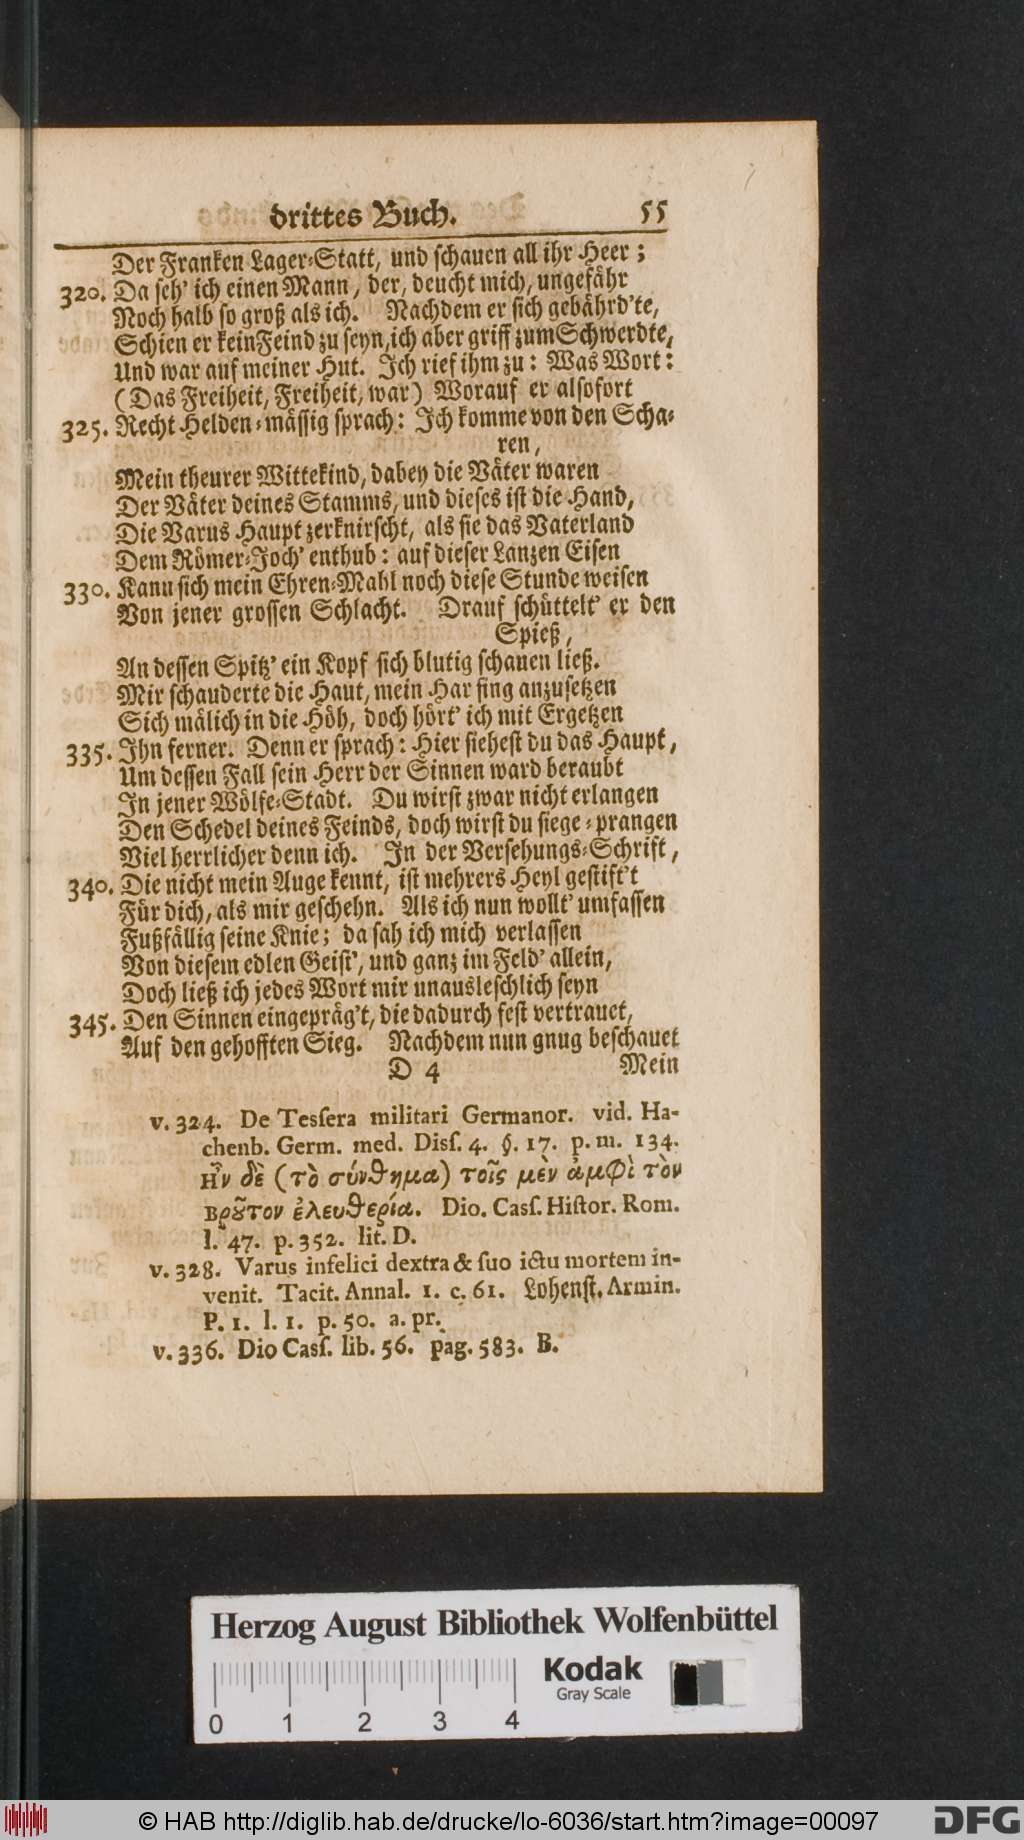 drittes Buch. 55
Der Franken Lager-Statt, und schauen all ihr Heer;
320. Da seh' ich einen Mann, der, deucht mich, ungefähr
Noch halb so groß als ich. Nachdem er sich gebährd'te,
Schien er kein Feind zu seyn, ich aber griff zum Schwerdte,
Und war auf meiner Hut. Ich rief ihm zu: Was Wort:
(Das Freiheit, Freiheit, war) Worauf er alsofort
325. Recht Helden-mässig sprach: Ich komme von den Scha-
ren,
Mein theurer Wittekind, dabey die Väter waren
Der Väter deines Stamms, und dieses ist die Hand,
Die Varus Haupt zerknirscht, als sie das Vaterland
Dem Römer-Joch' enthub: auf dieser Lanzen Eisen
330. Kann sich mein Ehren-Mahl noch diese Stunde weisen
Von jener grossen Schlacht. Drauf schüttelt' er den
Spieß,
An dessen Spitz' ein Kopf sich blutig schauen ließ.
Mir schauderte die Haut, mein Har fing anzusetzen
Sich mälich in die Höh, doch hört' ich mit Ergetzen
335. Ihn ferner. Denn er sprach: Hier siehest du das Haupt,
Um dessen Fall sein Herr der Sinnen ward beraubt
In jener Wölfe-Stadt. Du wirst zwar nicht erlangen
Den Schedel deines Feinds, doch wirst du siege-prangen
Viel herrlicher denn ich. In der Versehungs-Schrift,
340. Die nicht mein Auge kennt, ist mehrers Heyl gestift't
Für dich, als mir geschehn. Als ich nun wollt' umfassen
Fußfällig seine Knie; da sah ich mich verlassen
Von diesem edlen Geist', und ganz im Feld' allein,
Doch ließ ich jedes Wort mir unausleschlich seyn
345. Den Sinnen eingepräg't, die dadurch fest vertrauet,
Auf den gehofften Sieg. Nachdem nun gnug beschauet
D 4 Mein
v. 324. De Tesſera militari Germanor. vid. Ha-
chenb. Germ. med. Disſ. 4. §. 17. p. m. 134.
Ην δὲ (τὸ σύνθημα) τοῖς μὲν ἀμφὶ τὸν
Βρȣ͂τον ἐλευθερία. Dio. Casſ. Hiſtor. Rom.
l. 47. p. 352. lit. D.
v. 328. Varus infelici dextra & ſuo ictu mortem in-
venit. Tacit. Annal. 1. c. 61. Lohenst. Armin.
P. 1. l. 1. p. 50. a. pr.
v. 336. Dio Casſ. lib. 56. pag. 583. B.
Herzog August Bibliothek Wolfenbüttel
Kodak
Gray Scale
0 1 2 3 4
© HAB http://diglib.hab.de/drucke/lo-6036/start.htm?image=00097
DFG